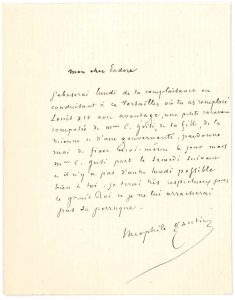 mon cher Eudore
j'abuserai lundi de ta complaisance en
conduisant à ce Versailles où tu as remplacé
Louis XIV avec avantage, une petite caravane
composée de Mme C. Grisi, de sa fille, de la
mienne et d'une gouvernante. pardonne
moi de fixer moi-même le jour mais
Mme C. Grisi part le samedi suivant
et il n'y a pas d'autre lundi possible
bien à toi. je serai très respectueux pour
le grand Roi et je ne lui arracherai
pas sa perruque.
Théophile Gautier